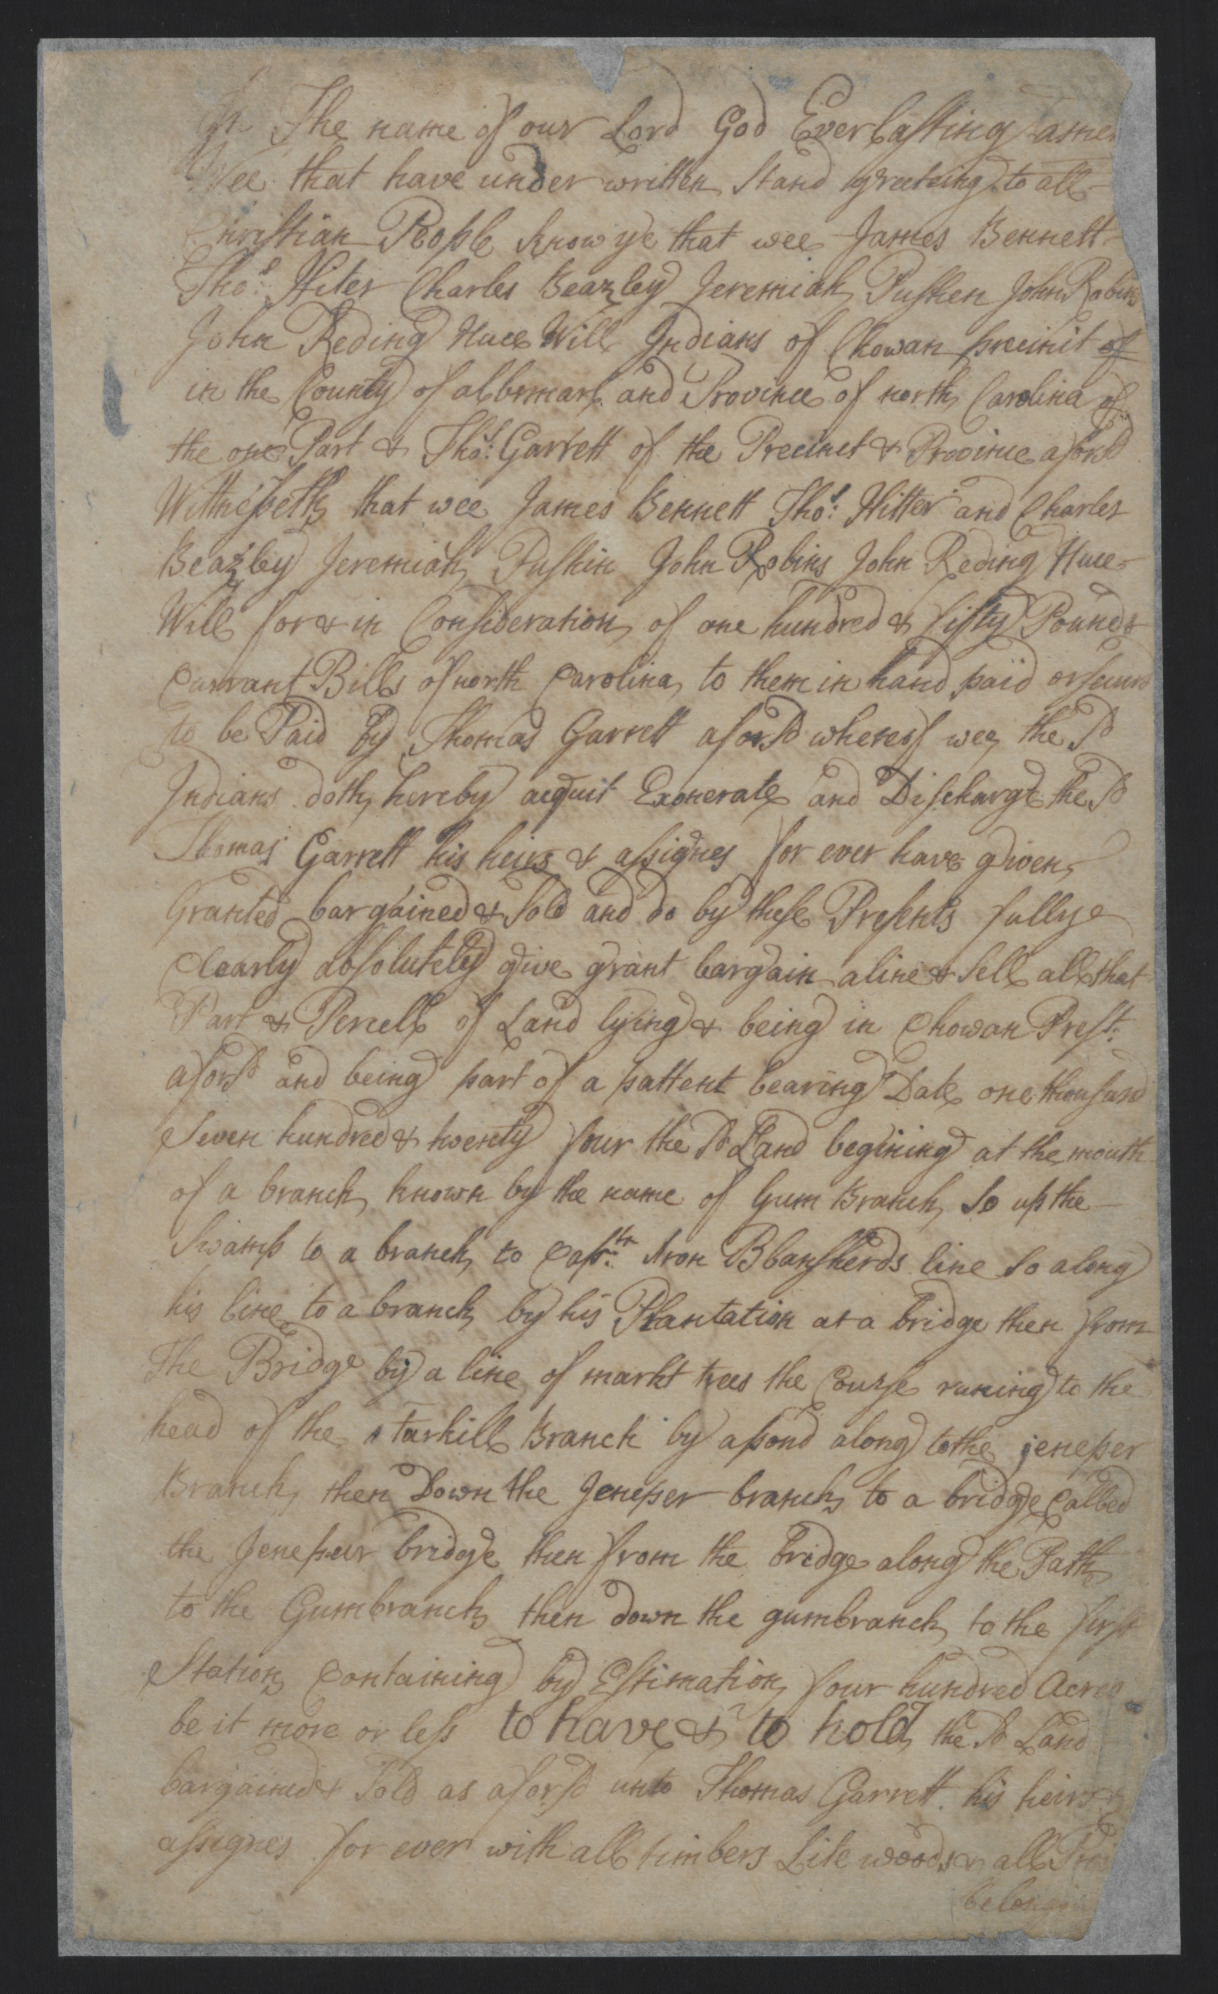 In The name of our Lord God Everlasting amen
Wee that have under written Stand greeteing to all
Christian People know ye that wee James Bennett
Thos: Hiter Charles Beazley Jeremiah Pushen John Robins
John Reding Nuce Will Indians of Chowan precinct of
in the County of albemarl and Province of north Carolina of
the one Part & Thos: Garrett of the Precinct & Province aforsd
Wittnesseth that wee James Bennett Thos: Hitter and Charles
Beazley Jeremiah Pushin John Robins John Reding Nuce
Will for & in Consideration of one hundred & fifty Pounds
Currant Bills of north Carolina to them in hand paid or secured
to be Paid by Thomas Garrett aforsd whereof wee the sd
Indians doth hereby acquit Exonerate and Discharge the sd
Thomas Garrett his heirs & assignes for ever have given
Granted bargained & Sold and do by these Presents fully
Clearly absolutely give grant bargain aline & Sell all that
Part & Percell of Land lying & being in Chowan Prest:
aforsd and being part of a pattent bearing Date one thousand
Seven hundred & twenty four the sd Land begining at the mouth
of a branch known by the name of Gum Branch So up the
Swamp to a branch to Captn: Aron Blansherds line So along
his line to a branch by his Plantation at a bridge then from
The Bridge by a line of markt trees the Course runing to the
head of the Tarkill Branch by a pond along to the jeneper
Branch then Down the Jeneper branch to a bridge Called
the Jeneper bridge then from the bridge along the Path
to the Gumbranch then down the gumbranch to the first
Station Containing by Estimation four hundred Acres
be it more or less to have & to hold the sd Land
bargained & Sold as aforsd unto Thomas Garrett his heirs &
assignes for ever with all timbers Like woods & all
belonging